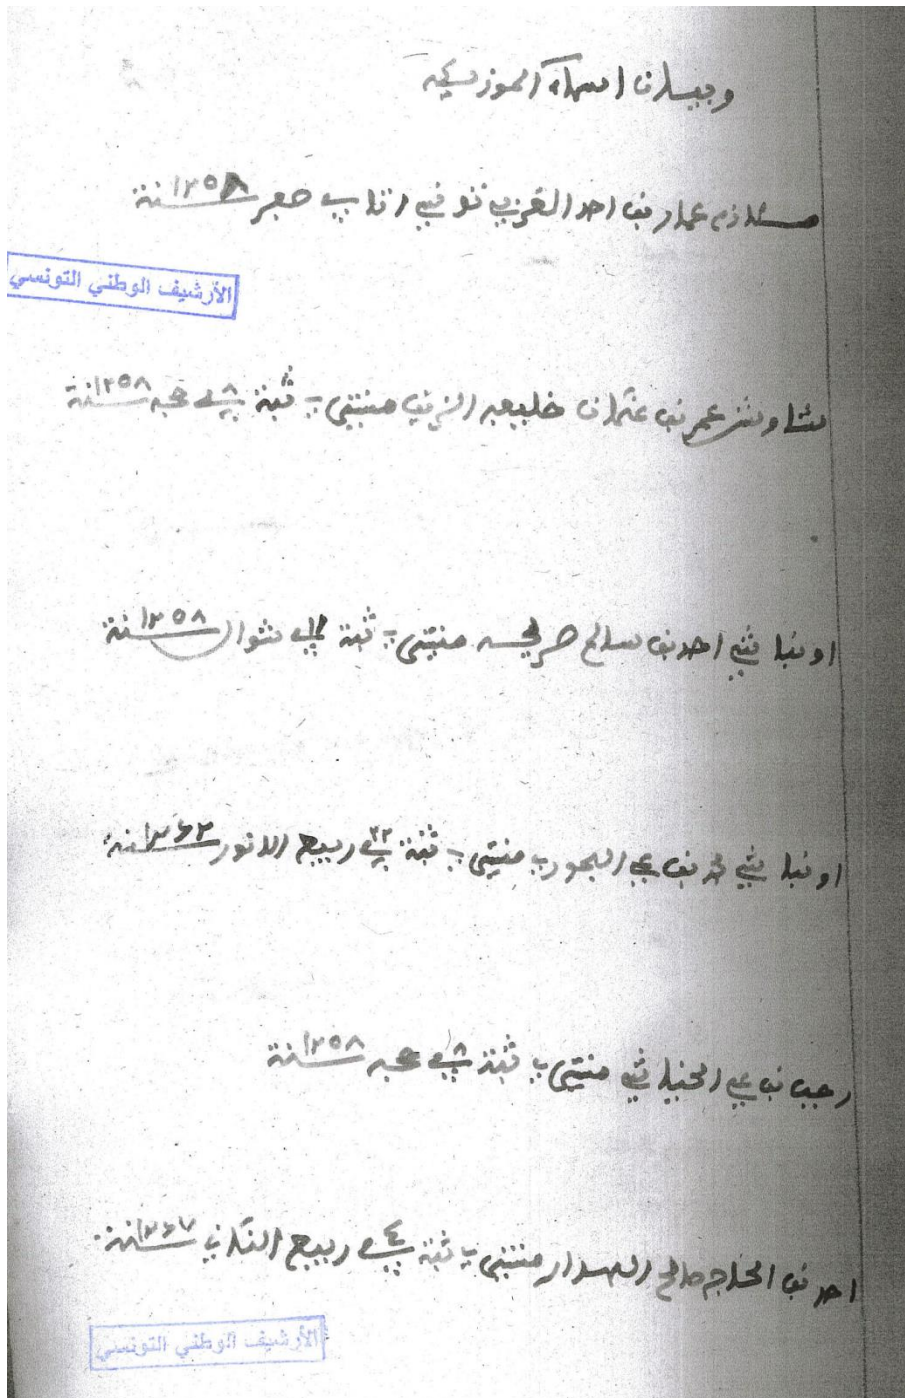 وبيسان اسماء الموزيكه
ملازم عمار بن احمد الغربي توفي اناب صفر سنة ١٢٥٨
الأرشيف الوطني التونسي
شاوش عمر بن عثمان خليفه الزين منتشي بـ ثبتة في ٨ حجه سنة ١٢٥٨
اونباشي احمد بن سالم منتشي بـ ثبتة في ١٢ شوال سنة ١٢٥٨
اونباشي محمد بن علي منتشي بـ ثبتة في ٢٢ ربيع الانور سنة ١٢٦٢
رجب بن علي منتشي بـ ثبتة في ٨ حجه سنة ١٢٥٨
احمد بن الحاج صالح منتشي بـ ثبتة في ٤ ربيع الثاني سنة ١٢٦٧
الأرشيف الوطني التونسي